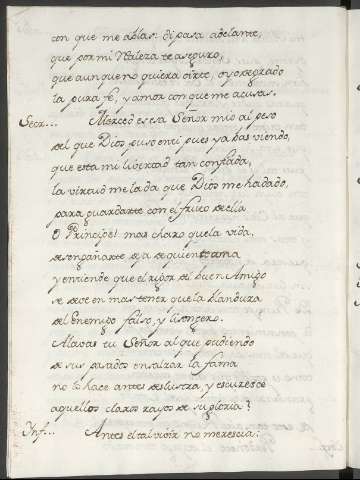 con que me ablas: di pasa adelante,
que por mi Nobleza te aseguro,
que aunque no quiera oirte, oyo de grado
la pura fe, y amor con que me acusas.
Secr... Merced es esa Señor mio al peso
del que Dios puso en ti pues ya bas viendo,
que esta mi livertad tan confiada,
la virtud me la da que Dios me ha dado,
para guardarte con el fruto de ella
O Principe! mas charo que la vida,
desengañarte deja de quien te ama
y entiende que el rigor del buen Amigo
se deve en mas tener que la blandura
del Enemigo falso, y lisongero.
Alavas tu Señor al que pudiendo
de sus pasados ensalzar la fama
no lo hace antes deslustra, y escuresce
aquellos claros rayos de su gloria?
Inf... Antes el tal vivir no merescia;